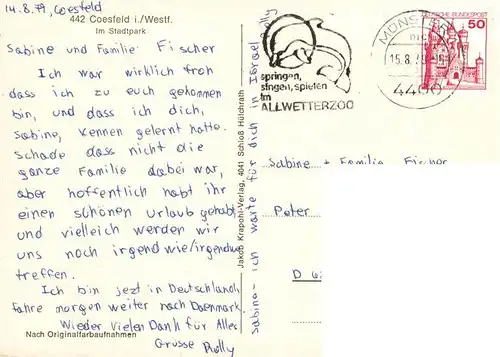 14.8.79, Coesfeld
442 Coesfeld i./Westf.
Im Stadtpark
Sabine und Familie Fischer
Ich war wirklich froh
dass ich zu euch gekommen
bin, und dass ich dich,
Sabine, kennen gelernt hatte.
Schade dass nicht die
ganze Familie dabei war,
aber hoffentlich habt ihr
einen schönen Urlaub gehabt,
und vielleich werden wir
uns noch irgend wie/irgendwo
treffen.
Ich bin jezt in Deutschland,
fahre morgen weiter nach Daenmark.
Wieder Vielen Dank für Alles
Grüsse
Nach Originalfarbaufnahmen
Jakob Krapohl-Verlag, 4041 Schloß Hülchrath
Sabine - ich warte für dich in Israel
springen,
singen, spielen
im
ALLWETTERZOO
MÜNSTER
15.8.
4400
DEUTSCHE BUNDESPOST
50
Sabine + Familie Fischer
Peter
D